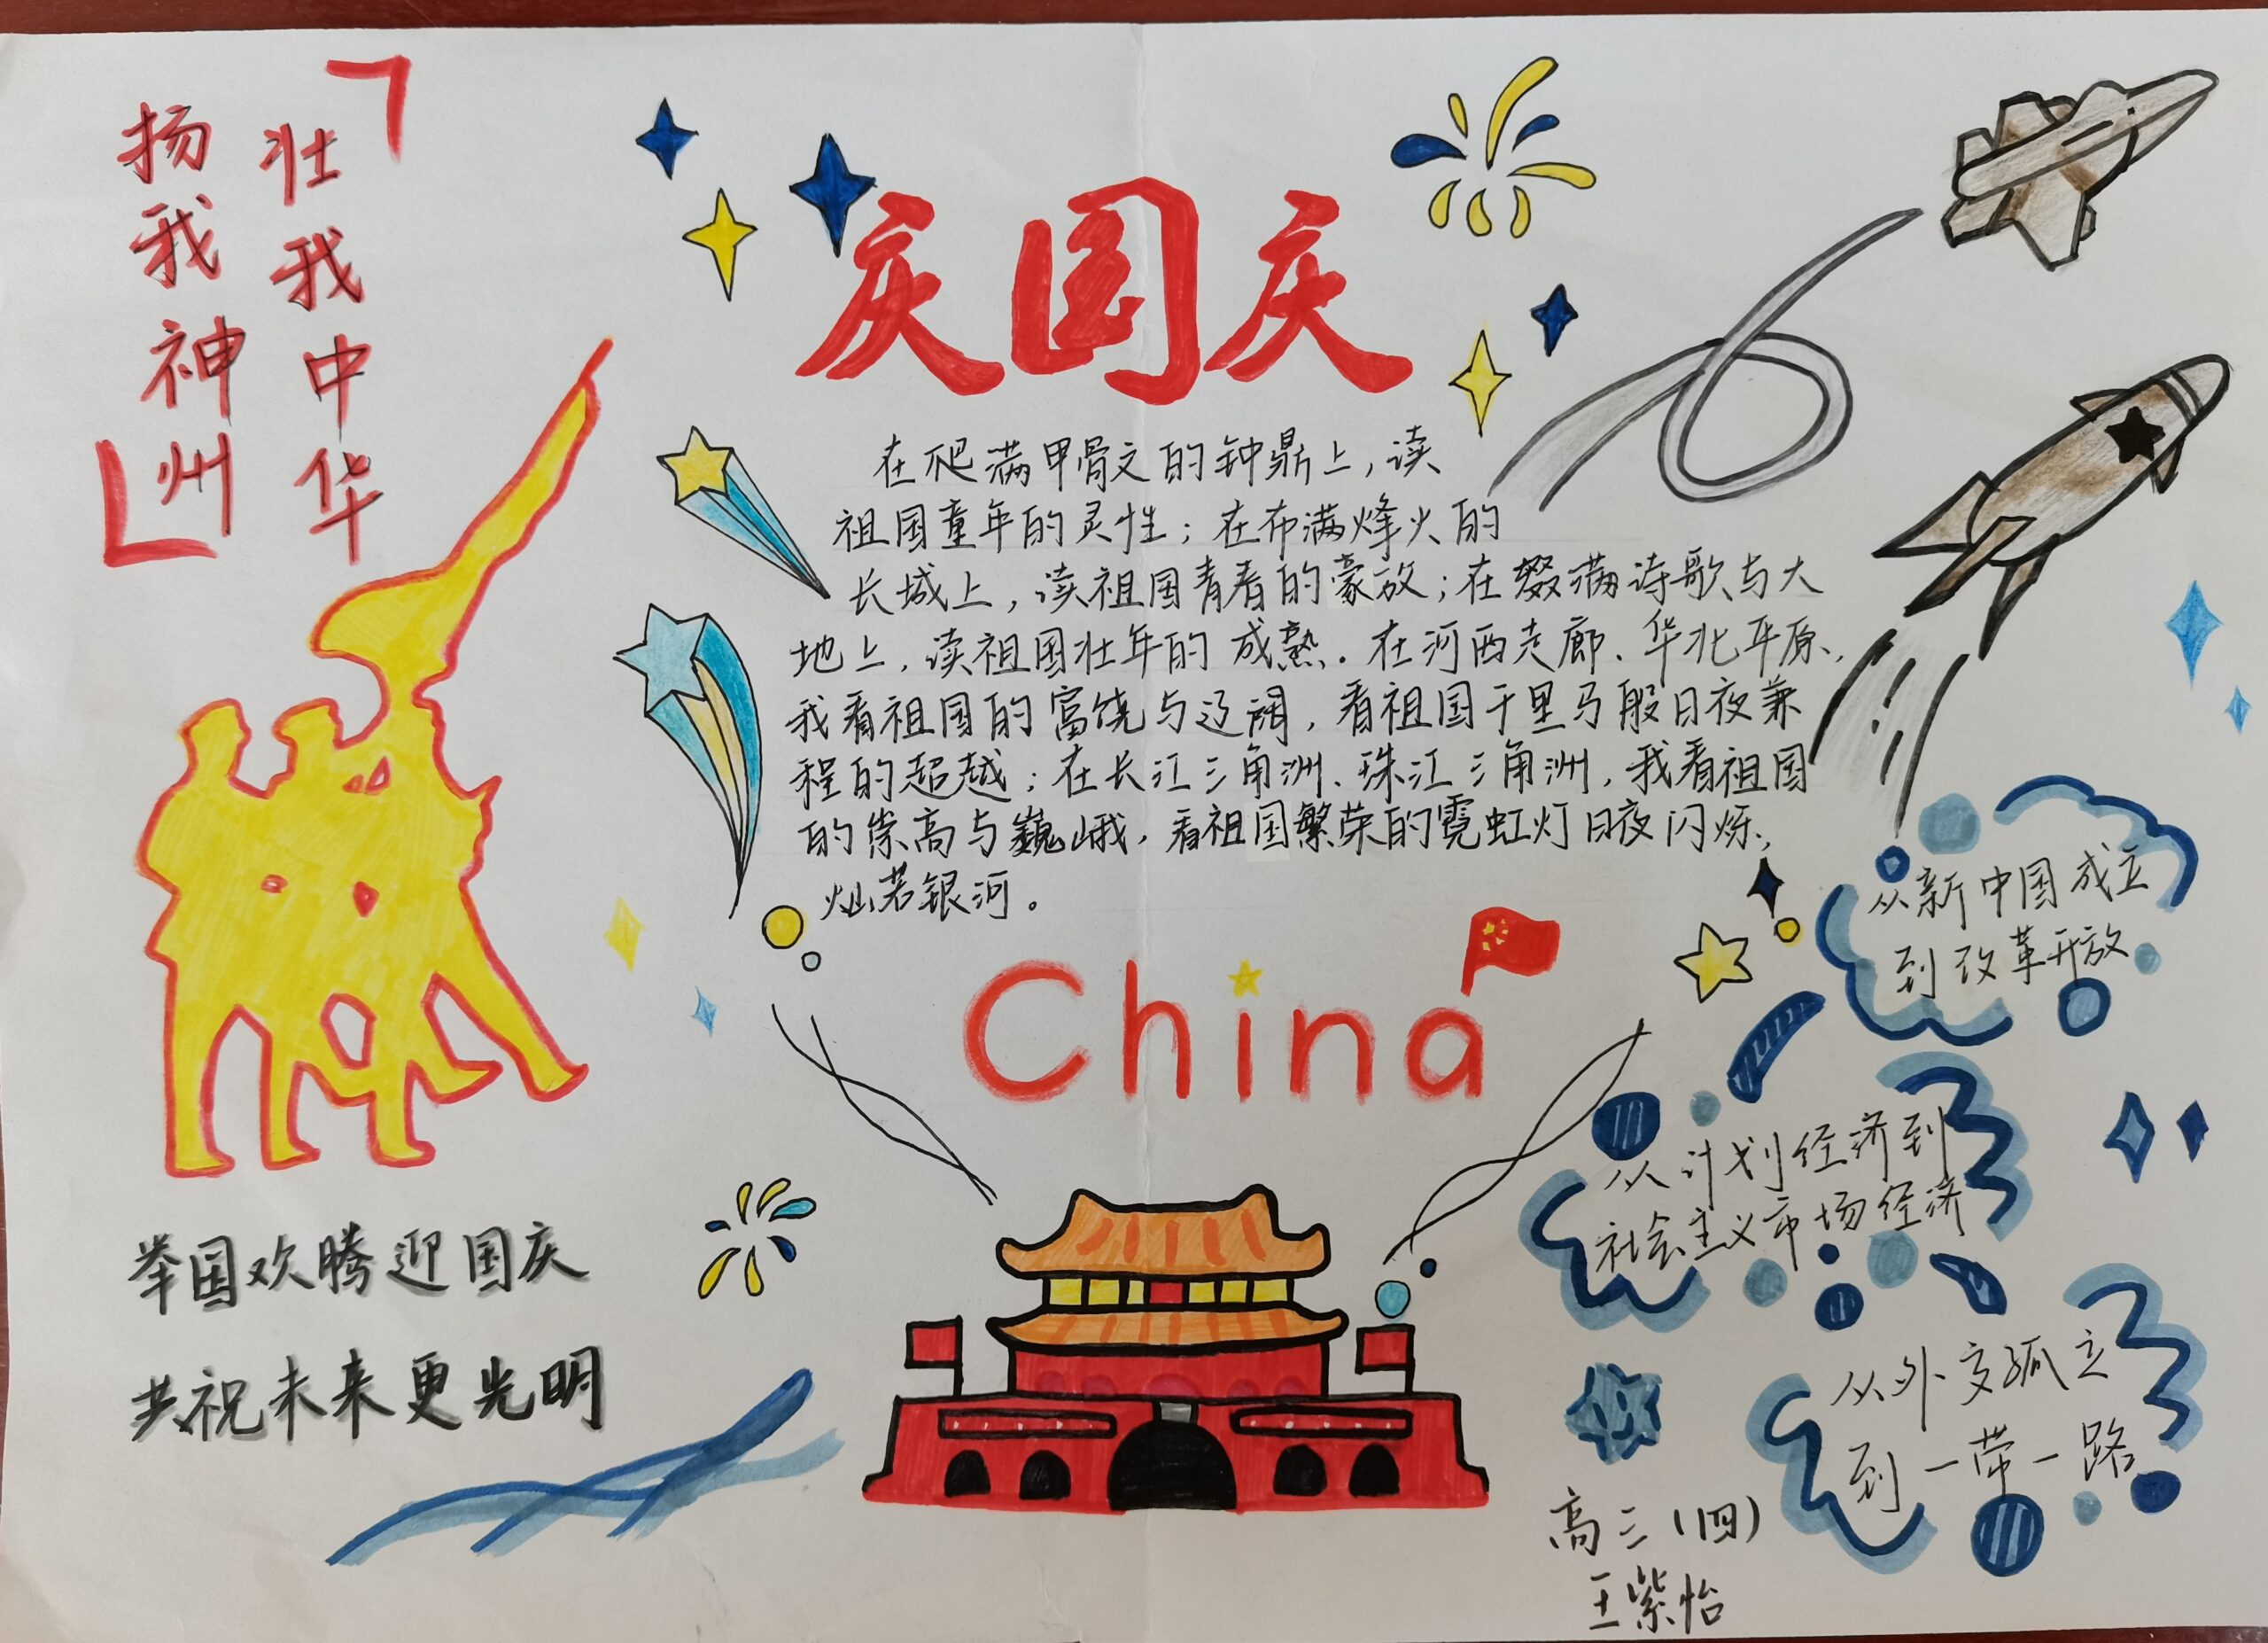 壮我中华
扬我神州
庆国庆
在爬满甲骨文的钟鼎上，读
祖国童年的灵性；在布满烽火的
长城上，读祖国青春的豪放；在缀满诗歌与大
地上，读祖国壮年的成熟。在河西走廊、华北平原、
我看祖国的富饶与辽阔，看祖国千里马般日夜兼
程的超越；在长江三角洲、珠江三角洲，我看祖国
的崇高与巍峨，看祖国繁荣的霓虹灯日夜闪烁、
灿若银河。
China
从新中国成立
到改革开放
从计划经济到
社会主义市场经济
从外交孤立
到一带一路
举国欢腾迎国庆
共祝未来更光明
高三（四）
王紫怡